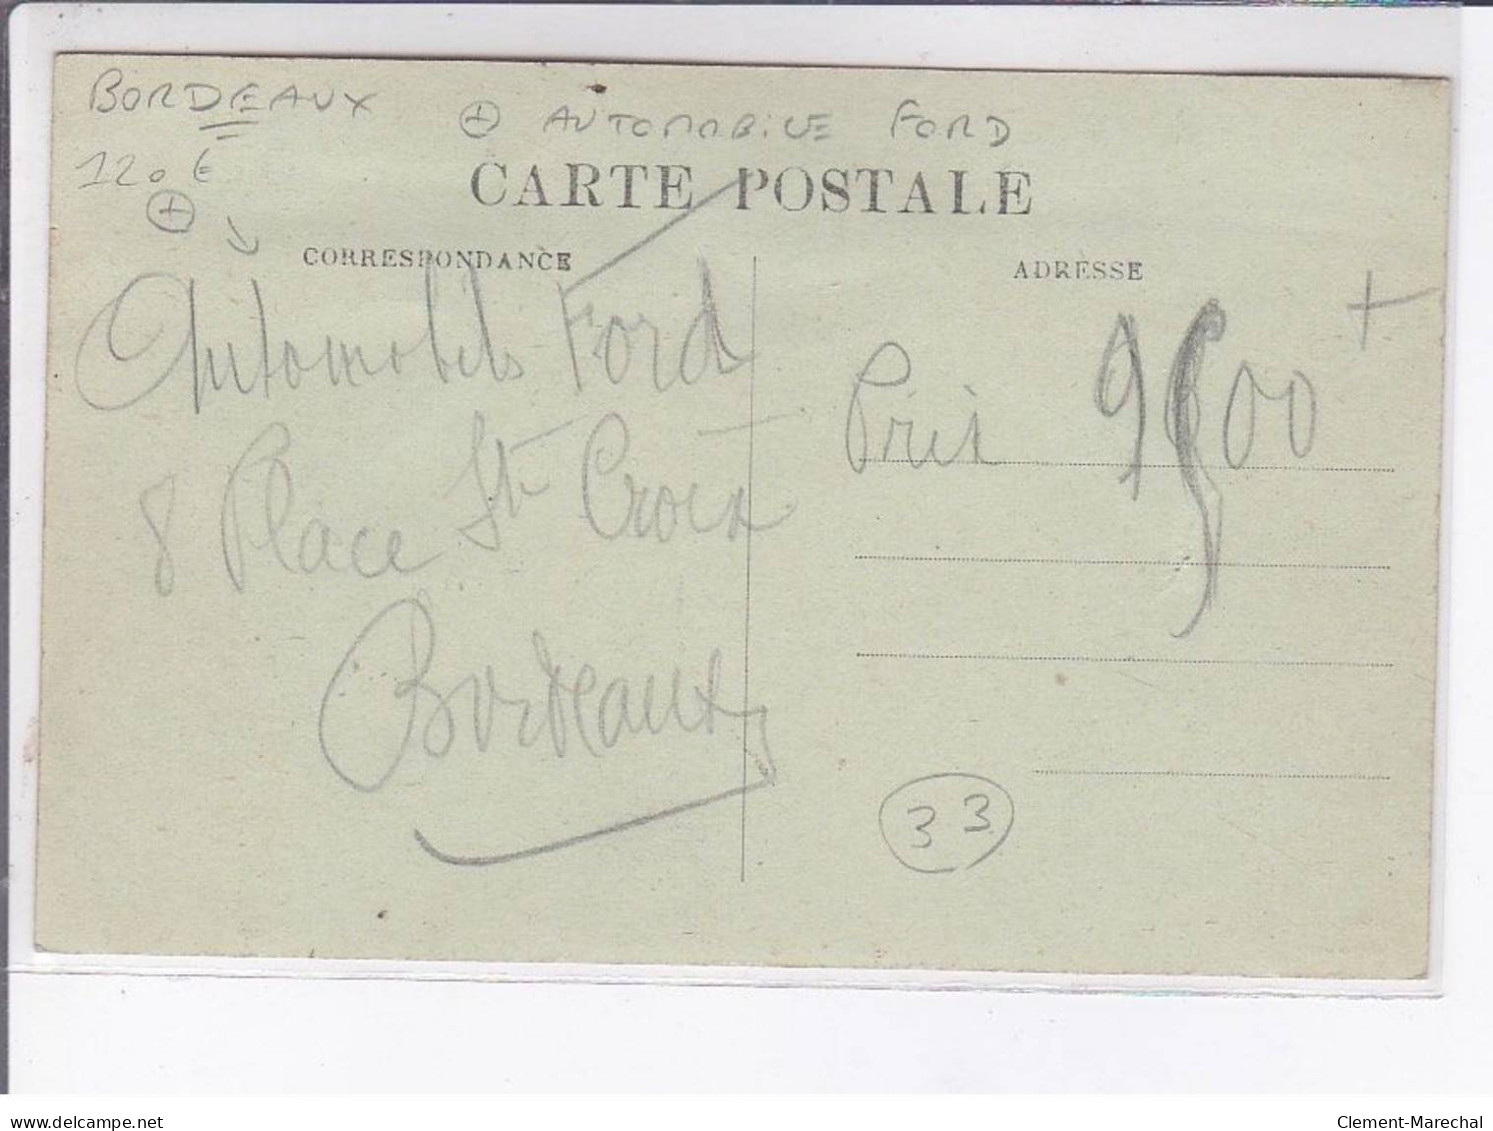 BORDEAUX
+ AUTOMOBILE FORD
120 €
+
CARTE POSTALE
CORRESPONDANCE
ADRESSE
Automobils Ford
Prix 9500 +
8 Place Ste Croix
Bordeaux
33
delcampe.net
Clement-Marechal